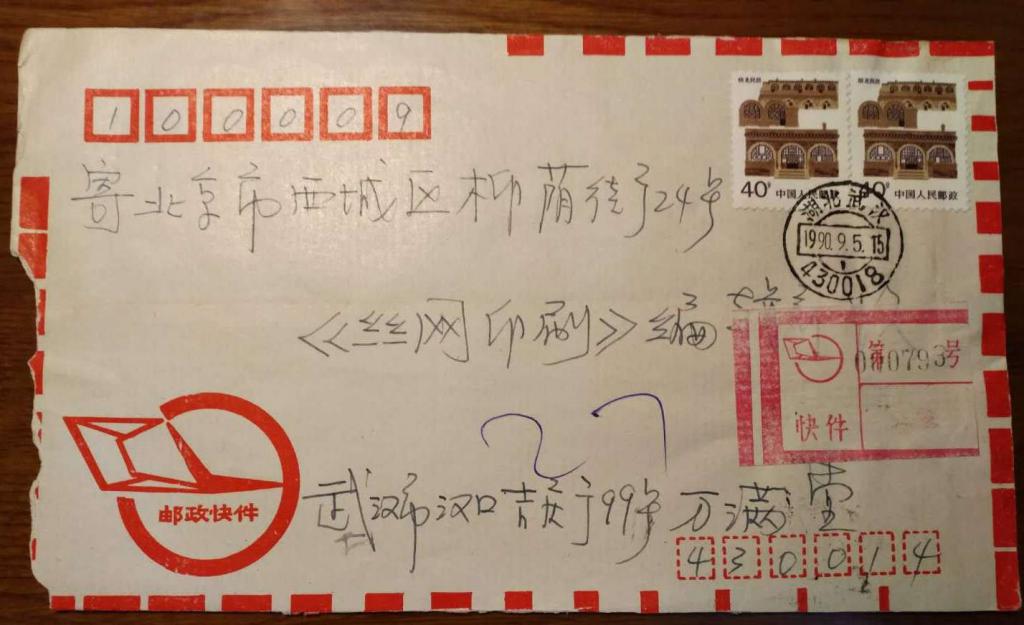 100009
陕北民居 陕北民居
40分 中国人民邮政 40分 中国人民邮政
寄北京市西城区柳荫街24号
湖北武汉
1990.9.5.15
430018
《丝网印刷》编
第000793号
快件
27
邮政快件
武汉市汉口吉庆街99号 万满堂
430014